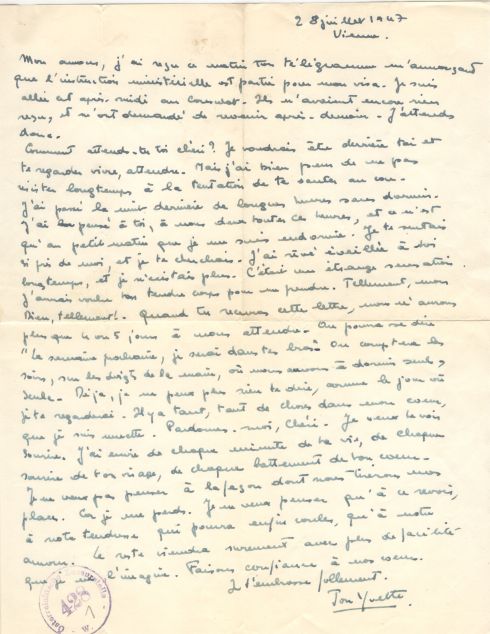 28 juillet 1947
Vienne.
Mon amour, j'ai reçu ce matin ton télégramme m'annonçant
que l'instruction ministérielle est partie pour mon visa. Je suis
allée cet après-midi au Consulat. Ils n'avaient encore rien
reçu, et m'ont demandé de revenir après-demain. J'attends
donc.
Comment attends-tu toi chéri? Je voudrais être derrière toi et
te regarder vivre, attendre. Mais j'ai bien peur de ne pas
résister longtemps à la tentation de te sauter au cou.
J'ai passé la nuit dernière de longues heures sans dormir.
J'ai pensé à toi, à nous deux toutes ces heures, et ce n'est
qu'au petit matin que je me suis endormie. Je te sentais
si près de moi, et je te cherchais. J'ai rêvé éveillée à toi
longtemps, et je n'existais plus. C'était une étrange sensation.
J'aurais voulu ton tendre corps pour me perdre. Tellement, mon
bien, tellement. Quand tu recevras cette lettre, nous n'aurons
plus que 4 ou 5 jours à nous attendre. On pourra se dire
"La semaine prochaine, je serai dans tes bras". On comptera les
soirs, sur les doigts de la main, où nous aurons à dormir seuls,
seule. Déjà, je ne peux plus rien te dire, comme le jour où
je te regarderai. Il y a tant, tant de choses dans mon coeur,
que je suis muette. Pardonnes-moi, Chéri. Je veux te voir
sourire. J'ai envie de chaque minute de ta vie, de chaque
sourire de ton visage, de chaque battement de ton coeur.
Je ne veux pas penser à la façon dont nous tirerons nos
plans. Car je me perds. Je ne veux penser qu'à ce revoir,
à notre tendresse qui pourra enfin couler, qu'à notre
amour. Le reste viendra surement avec plus de facilité
que je ne l'imagine. Faisons confiance à nos coeurs.
Je t'embrasse follement.
Ton Yvette.
428
W.